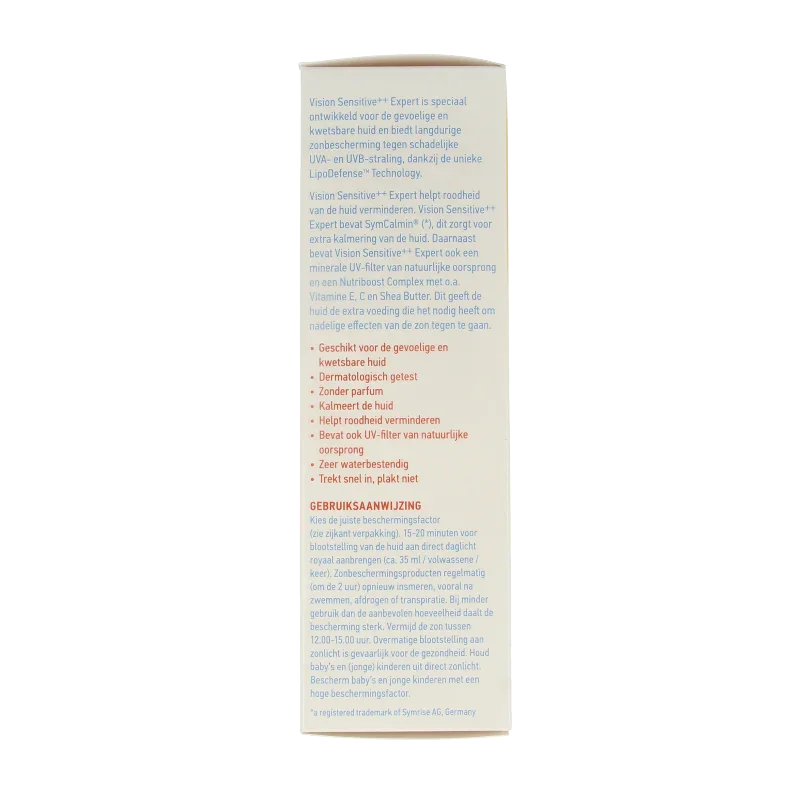 Vision Sensitive⁺⁺ Expert is speciaal
ontwikkeld voor de gevoelige en
kwetsbare huid en biedt langdurige
zonbescherming tegen schadelijke
UVA- en UVB-straling, dankzij de unieke
LipoDefense™ Technology.
Vision Sensitive⁺⁺ Expert helpt roodheid
van de huid verminderen. Vision Sensitive⁺⁺
Expert bevat SymCalmin® (*), dit zorgt voor
extra kalmering van de huid. Daarnaast
bevat Vision Sensitive⁺⁺ Expert ook een
minerale UV-filter van natuurlijke oorsprong
en een Nutriboost Complex met o.a.
Vitamine E, C en Shea Butter. Dit geeft de
huid de extra voeding die het nodig heeft om
nadelige effecten van de zon tegen te gaan.
• Geschikt voor de gevoelige en
kwetsbare huid
• Dermatologisch getest
• Zonder parfum
• Kalmeert de huid
• Helpt roodheid verminderen
• Bevat ook UV-filter van natuurlijke
oorsprong
• Zeer waterbestendig
• Trekt snel in, plakt niet
GEBRUIKSAANWIJZING
Kies de juiste beschermingsfactor
(zie zijkant verpakking). 15-20 minuten voor
blootstelling van de huid aan direct daglicht
royaal aanbrengen (ca. 35 ml / volwassene /
keer). Zonbeschermingsproducten regelmatig
(om de 2 uur) opnieuw insmeren, vooral na
zwemmen, afdrogen of transpiratie. Bij minder
gebruik dan de aanbevolen hoeveelheid daalt de
bescherming sterk. Vermijd de zon tussen
12.00-15.00 uur. Overmatige blootstelling aan
zonlicht is gevaarlijk voor de gezondheid. Houd
baby's en (jonge) kinderen uit direct zonlicht.
Bescherm baby's en jonge kinderen met een
hoge beschermingsfactor.
*a registered trademark of Symrise AG, Germany